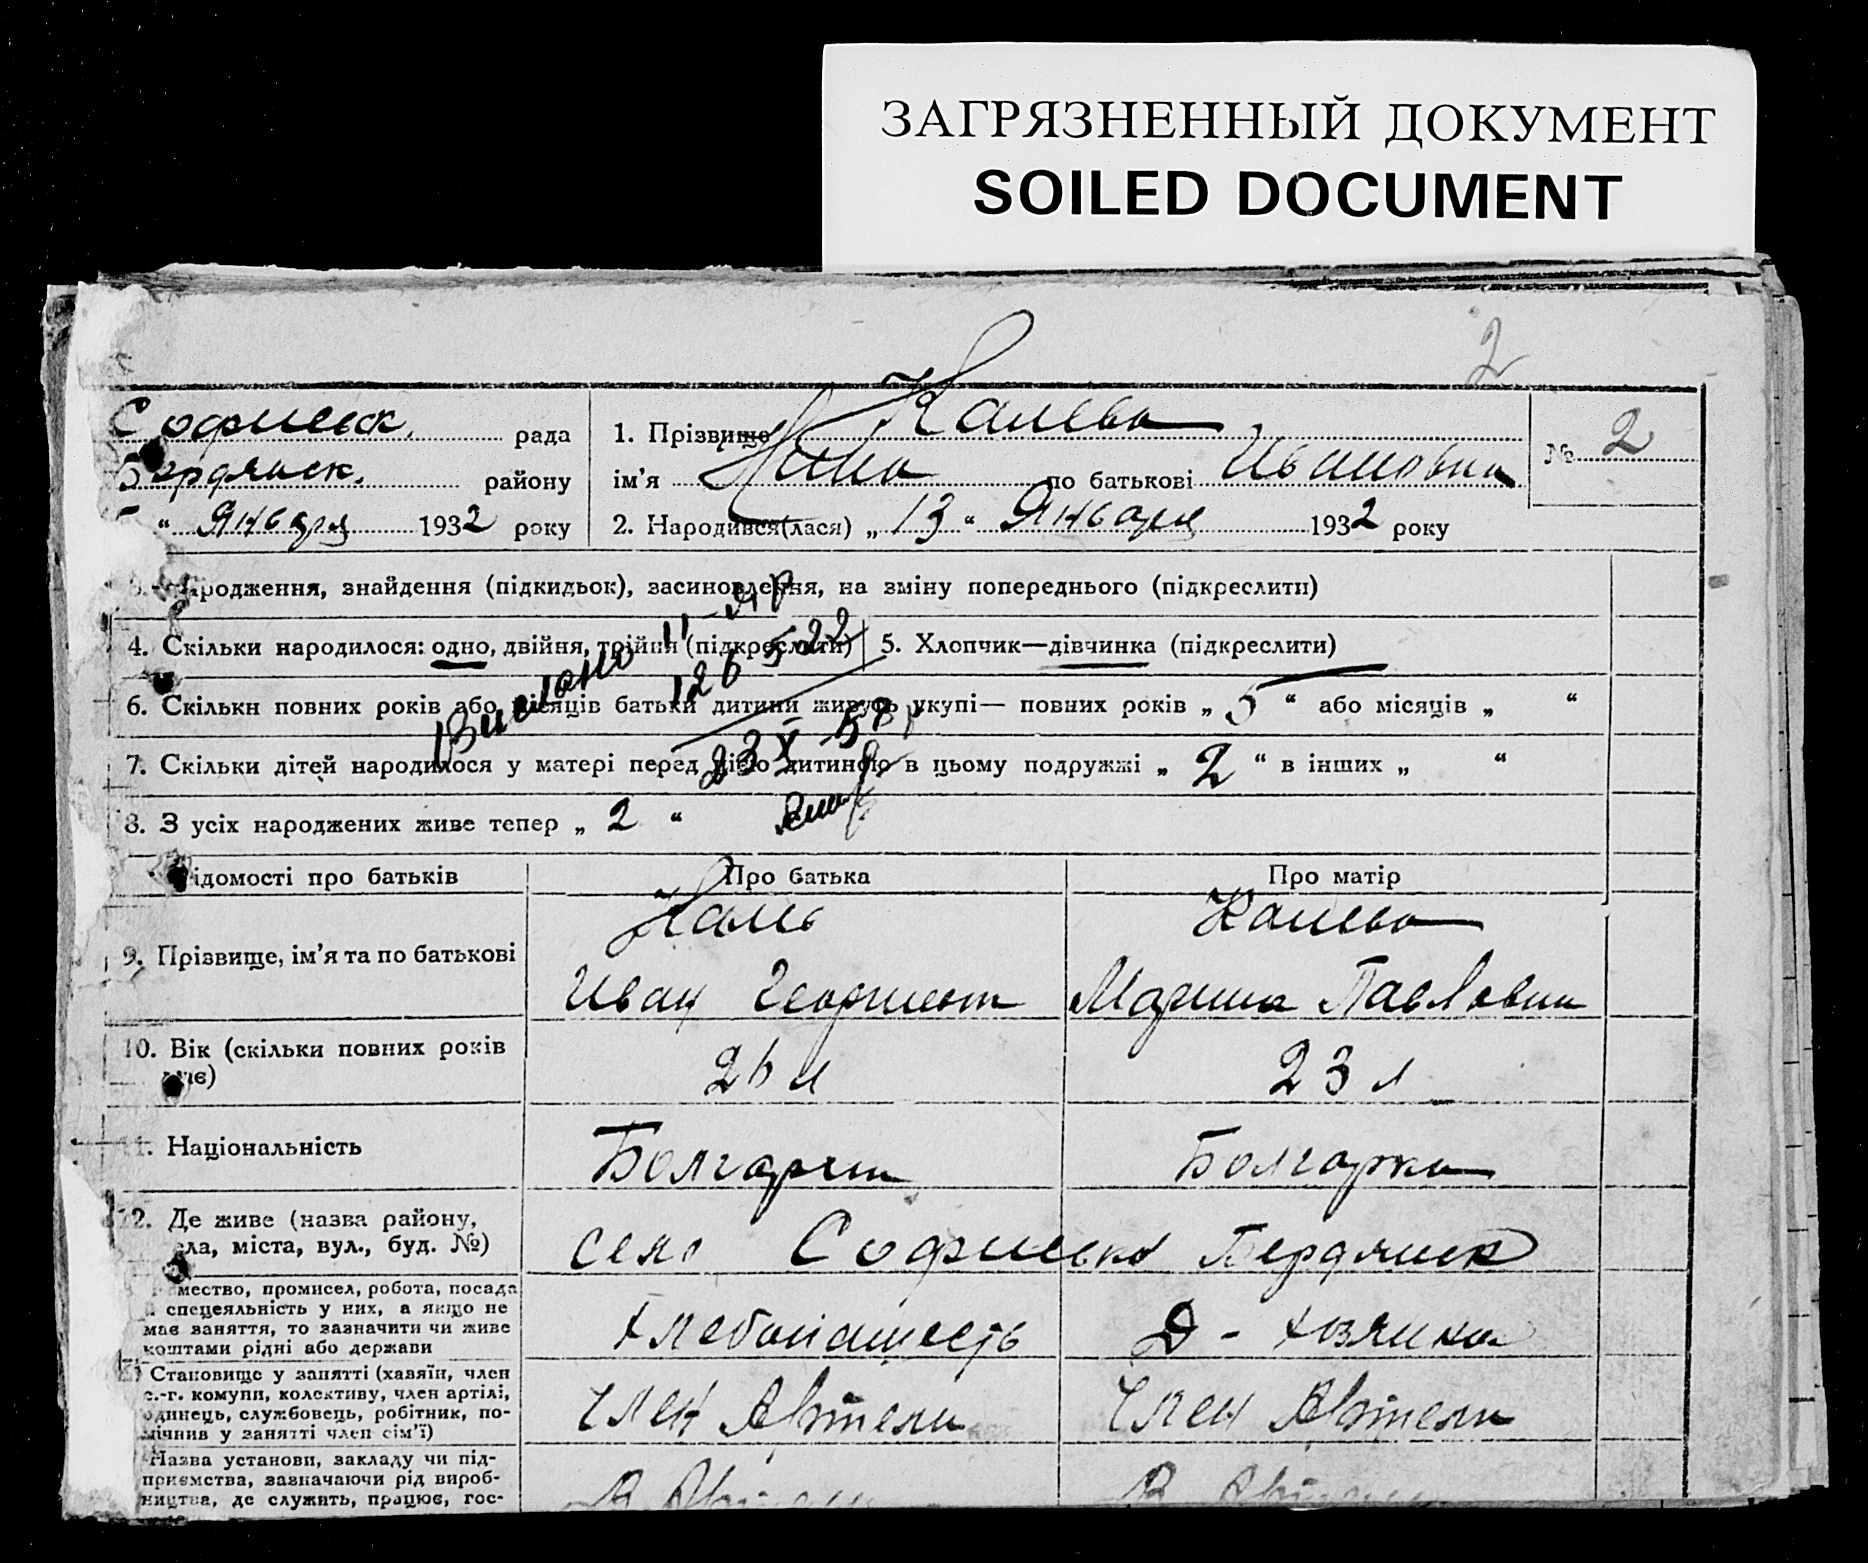 ЗАГРЯЗНЕННЫЙ ДОКУМЕНТ
SOILED DOCUMENT
2
Софиевск. рада
Бердянск. району
“ Января 1932 року
1. Прізвище Калева
ім'я Нина по батькові Ивановна
2. Народився(лася) „ 13 “ Января 1932 року
№ 2
народження, знайдення (підкидьок), засиновлення, на зміну попереднього (підкреслити)
4. Скільки народилося: одно, двійня, трійня (підкреслити)
5. Хлопчик—дівчинка (підкреслити)
6. Скільки повних років або місяців батьки дитини живуть укупі— повних років „ 5 “ або місяців „ “
7. Скільки дітей народилося у матері перед цією дитиною в цьому подружжі „ 2 “ в інших „ “
8. З усіх народжених живе тепер „ 2 “
Выслано
23 X 57 р
ідомості про батьків
Про батька
Про матір
9. Прізвище, ім'я та по батькові
Калев
Иван Георгиев
Калева
Марина Павловна
10. Вік (скільки повних років
має)
26 л
23 л
11. Національність
Болгарин
Болгарка
12. Де живе (назва району,
села, міста, вул., буд. №)
село Софиевка Бердянск
мество, промисел, робота, посада
спецеяльність у них, а якщо не
має заняття, то зазначити чи живе
коштами рідні або держави
Хлебопашесть
Д - хозяика
Становище у занятті (хавяїн, член
с.-г. комуни, колективу, член артілі,
одинець, службовець, робітник, по-
мічнив у занятті член сім'ї)
Член Артели
Член Артели
Назва установи, закладу чи під-
приємства, зазначаючи рід вироб-
ництва, де служить, працює, гос-
В Артели
В Артели